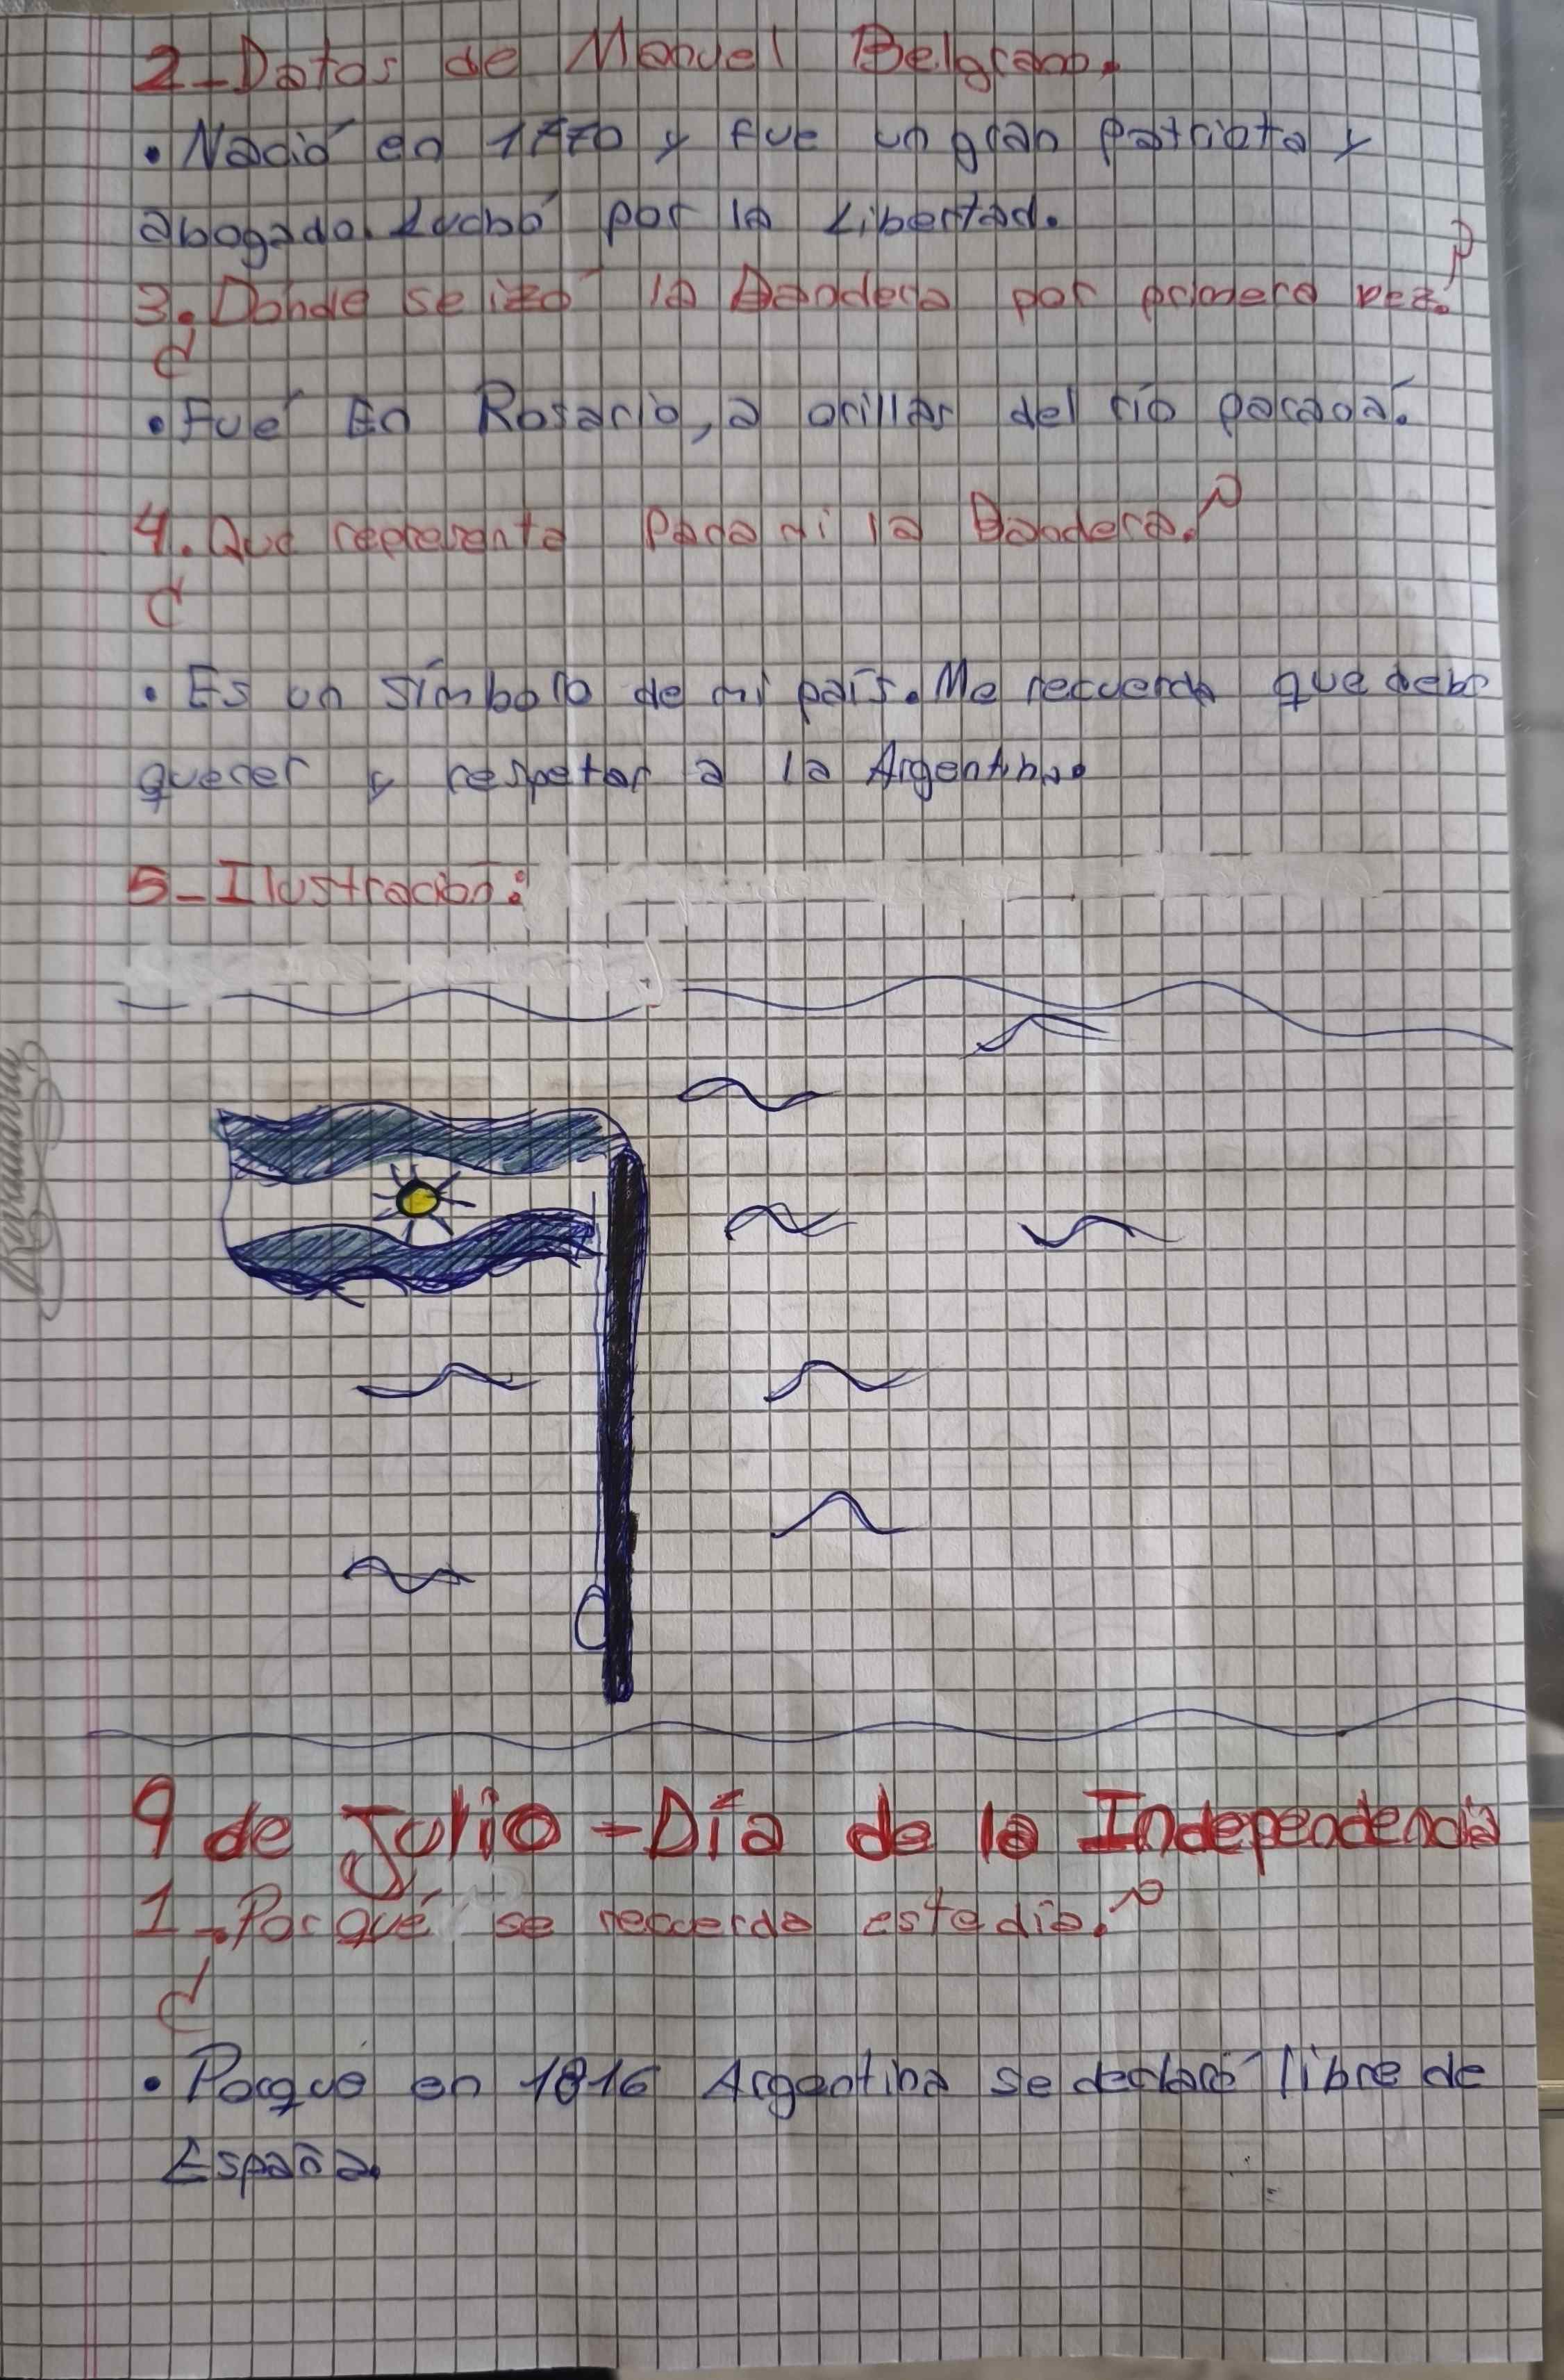 2-Datos de Manuel Belgrano.
• Nació en 1770 y fue un gran patriota y
abogado. Luchó por la Libertad.
3. Donde se izó la Bandera por primera vez?
¿
• Fué En Rosario, a orillas del río paraná.
4. Que representa Para mi la Bandera?
¿
• Es un símbolo de mi país. Me recuerda que debo
querer y respetar a la Argentina.
5-Ilustración:
9 de Julio - Día de la Independencia
1-Por qué se recuerda este día?
¿
• Porque en 1816 Argentina se declaró libre de
España.